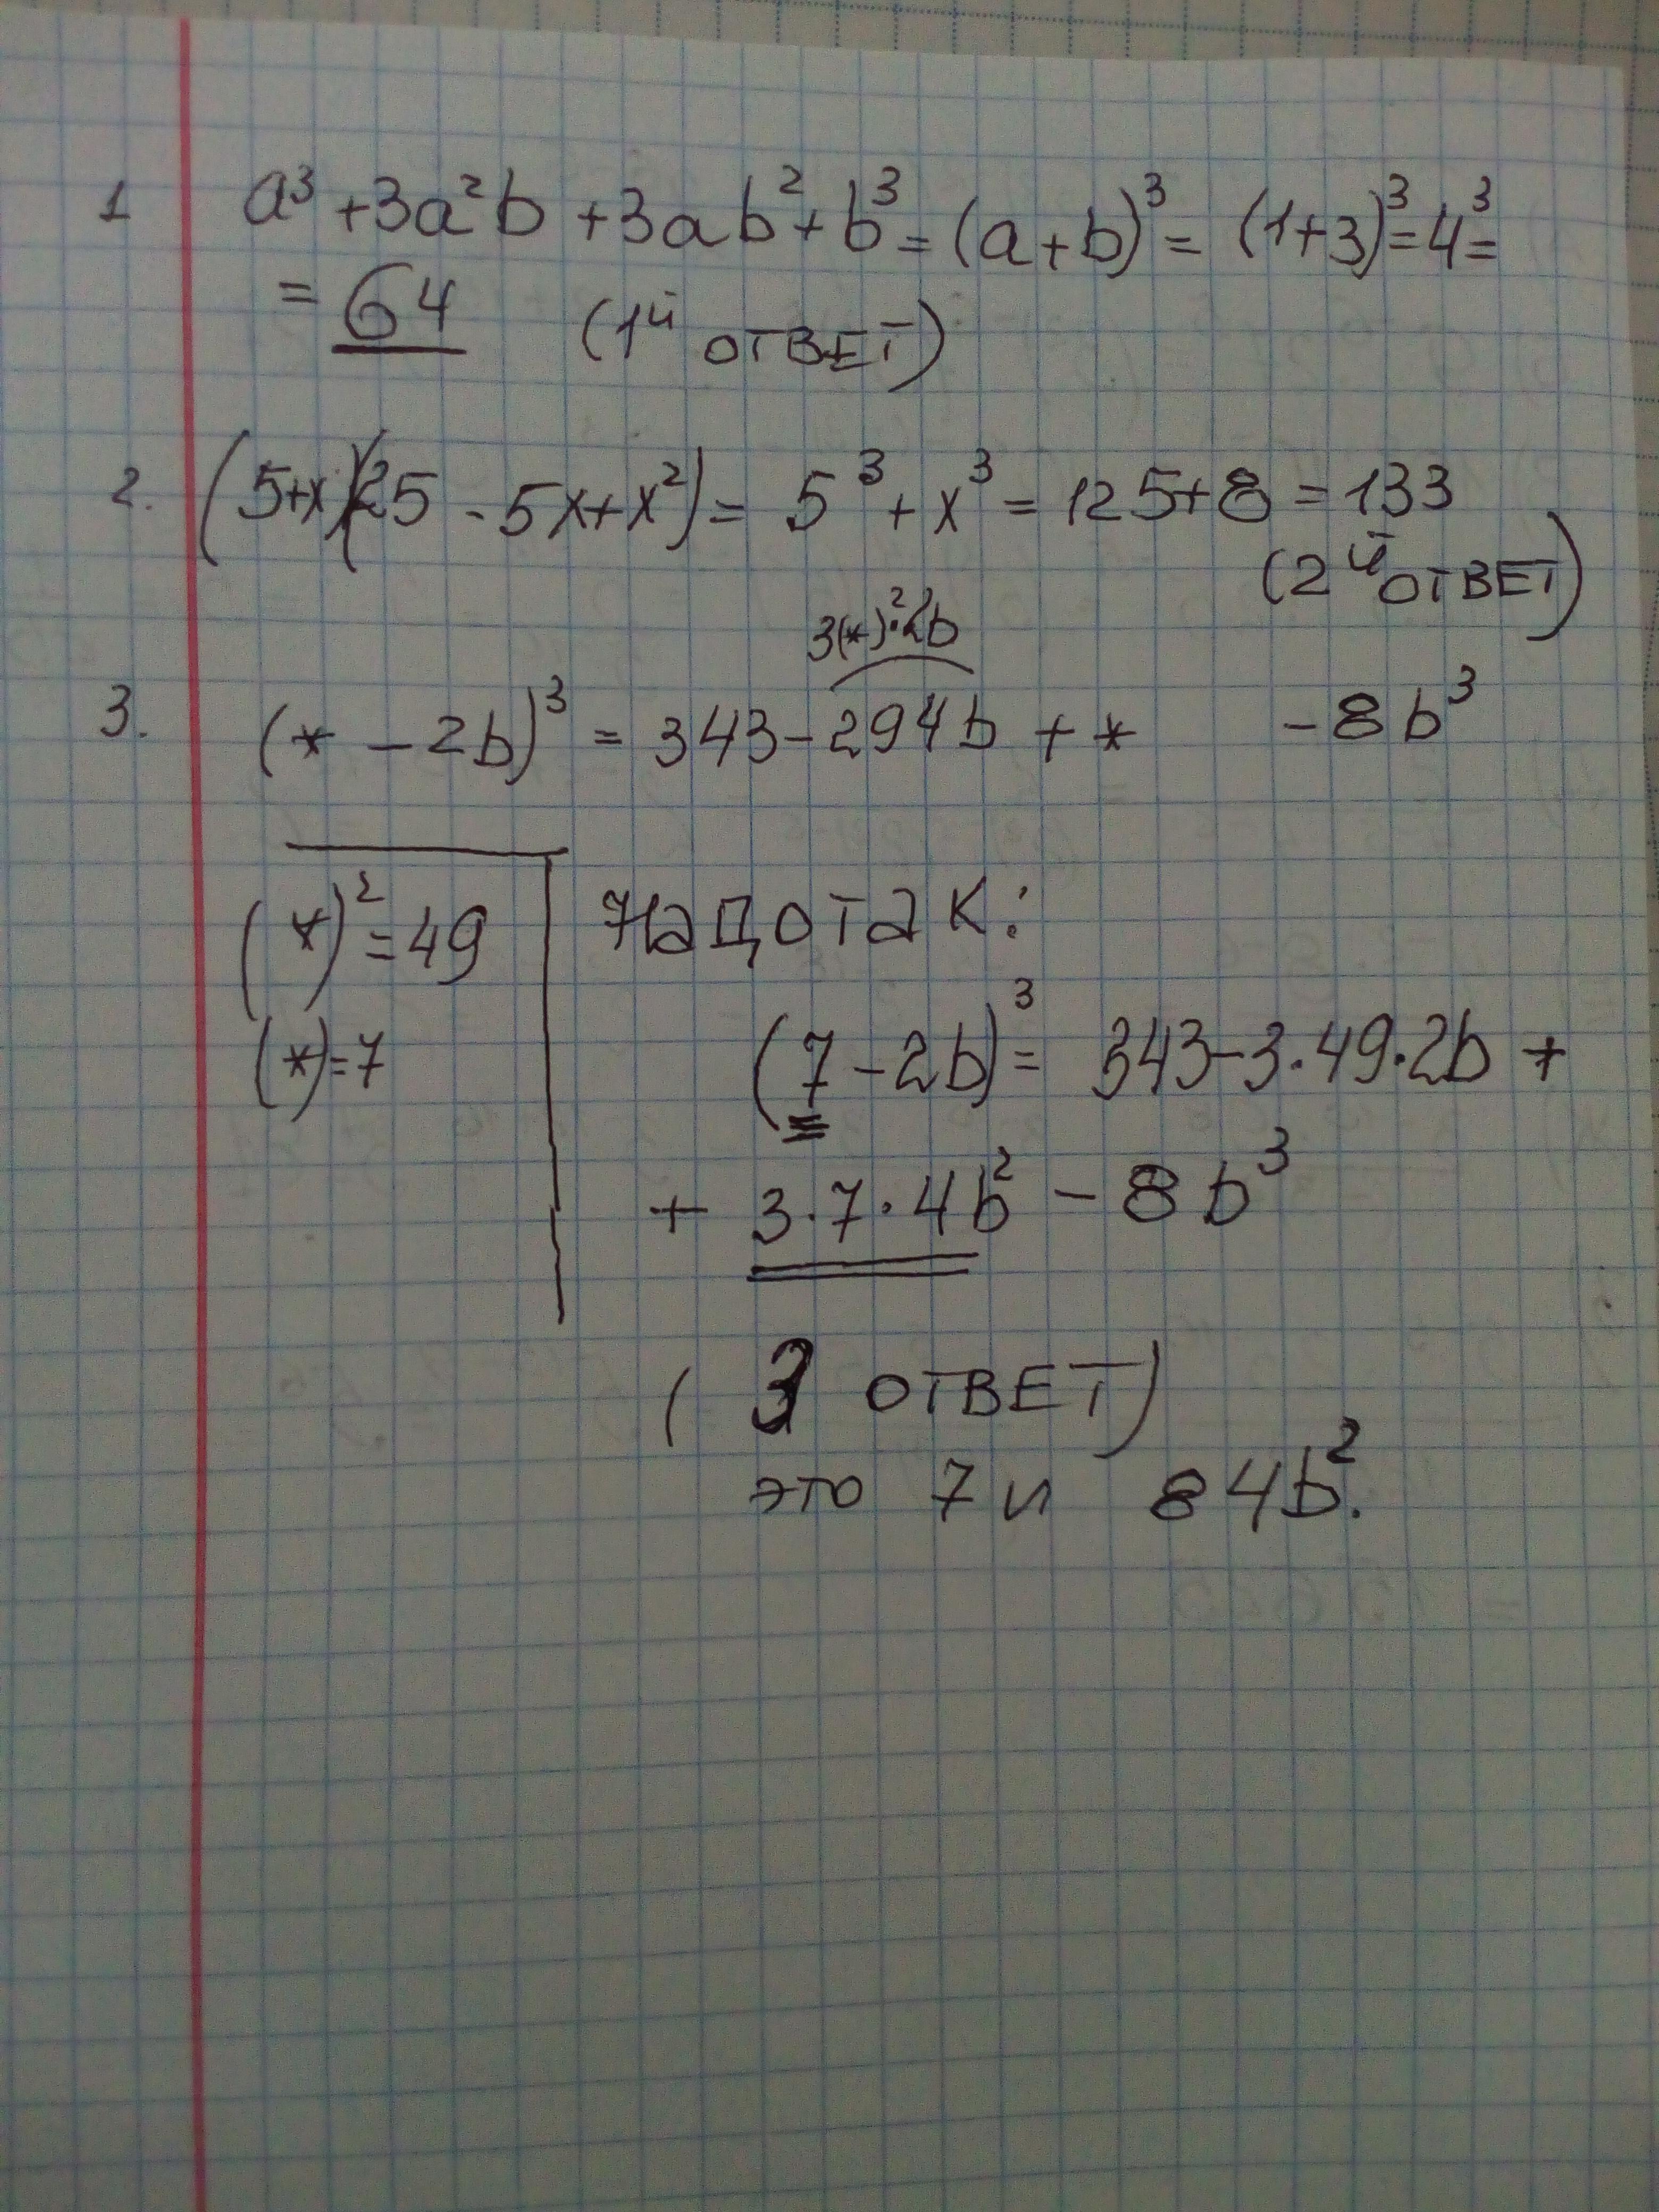 1 a³ + 3a²b + 3ab² + b³ = (a + b)³ = (1+3)³ = 4³ =
= 64 (1й ОТВЕТ)
2. (5+x)(25 - 5x + x²) = 5³ + x³ = 125 + 8 = 133
(2й ОТВЕТ)
3(*)²·2b
3. (* - 2b)³ = 343 - 294b + * - 8b³
(*)² = 49
(*) = 7
НАДО ТАК:
(7 - 2b)³ = 343 - 3·49·2b +
+ 3·7·4b² - 8b³
(3 ОТВЕТ)
это 7 и 84b².